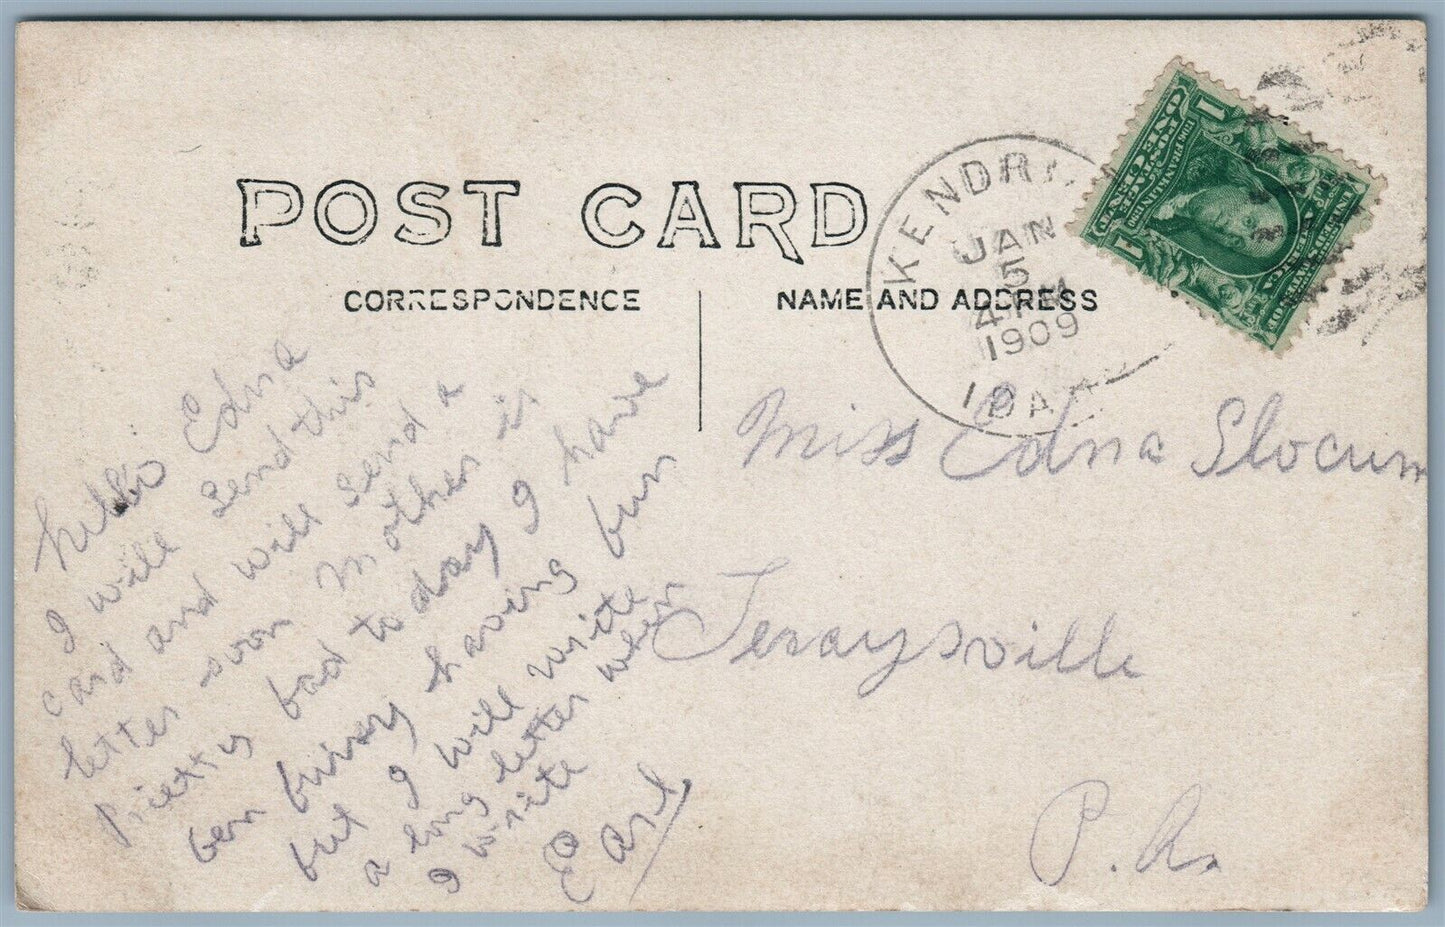 POST CARD
CORRESPONDENCE
NAME AND ADDRESS
KENDRI
JAN
5
4 PM
1909
IDA
1
1
hello Edna
I will send this
card and will send a
letter soon Mother is
Pretty bad to day I have
ben buisy having fun
but I will write
a long letter when
I write
Earl
Miss Edna Slocum
Teraysville
P.A.